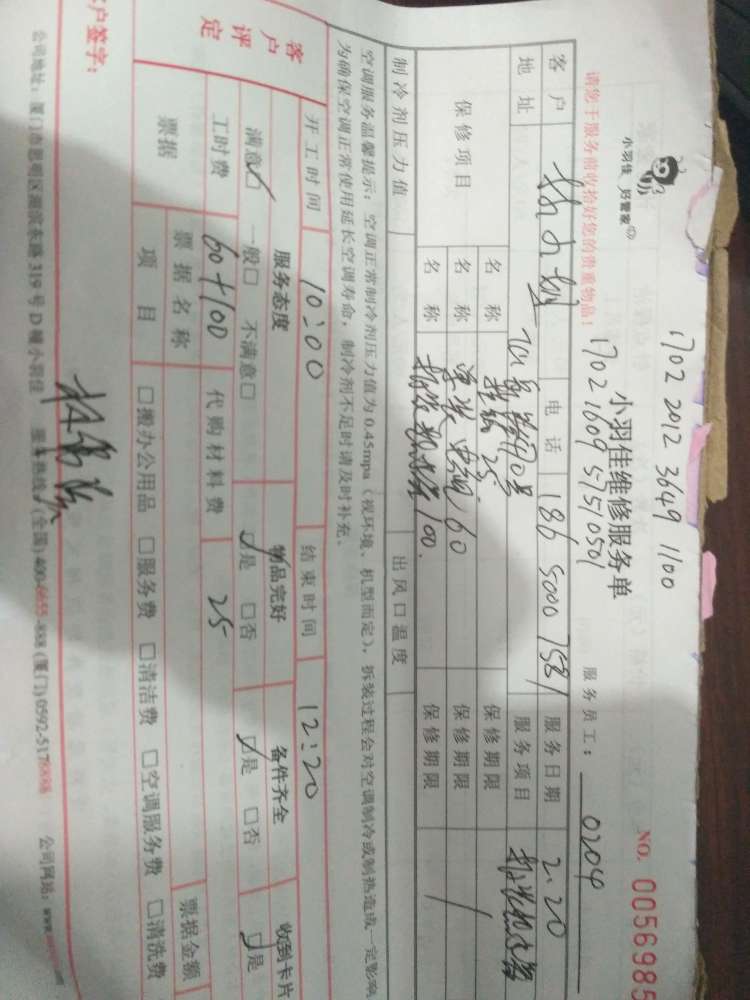 1702 2012 3649 1100
小羽佳 好管家
小羽佳维修服务单
NO. 0056985
1702 1609 5751 0501
请您于服务前收拾好您的贵重物品!
服务员工: 0204
客户 电话 186 5000 7581 服务日期 2.20
地址 服务项目
保修项目 名称 保修期限
名称 60 保修期限
名称 100. 保修期限
制冷剂压力值 出风口温度
空调服务温馨提示: 空调正常制冷剂压力值为 0.45mpa (视环境、机型而定), 拆装过程会对空调制冷或制热造成一定影响,
为确保空调正常使用延长空调寿命, 制冷剂不足时请及时补充。
开工时间 10:00 结束时间 12:20
客户评定 服务态度 物品完好 备件齐全 收到卡片
满意☑ 一般□ 不满意□ ☑是 □否 ☑是 □否 ☑是
工时费 60+100 代购材料费 25
票据 票据名称 票据金额
项目 □搬办公用品 □服务费 □清洁费 □空调服务费 □清洗费
公司地址: 厦门市思明区湖滨东路 319 号 D 幢小羽佳 服务热线: (全国) 400-6655-888 (厦门) 0592-5176666 公司网站: www.
客户签字: